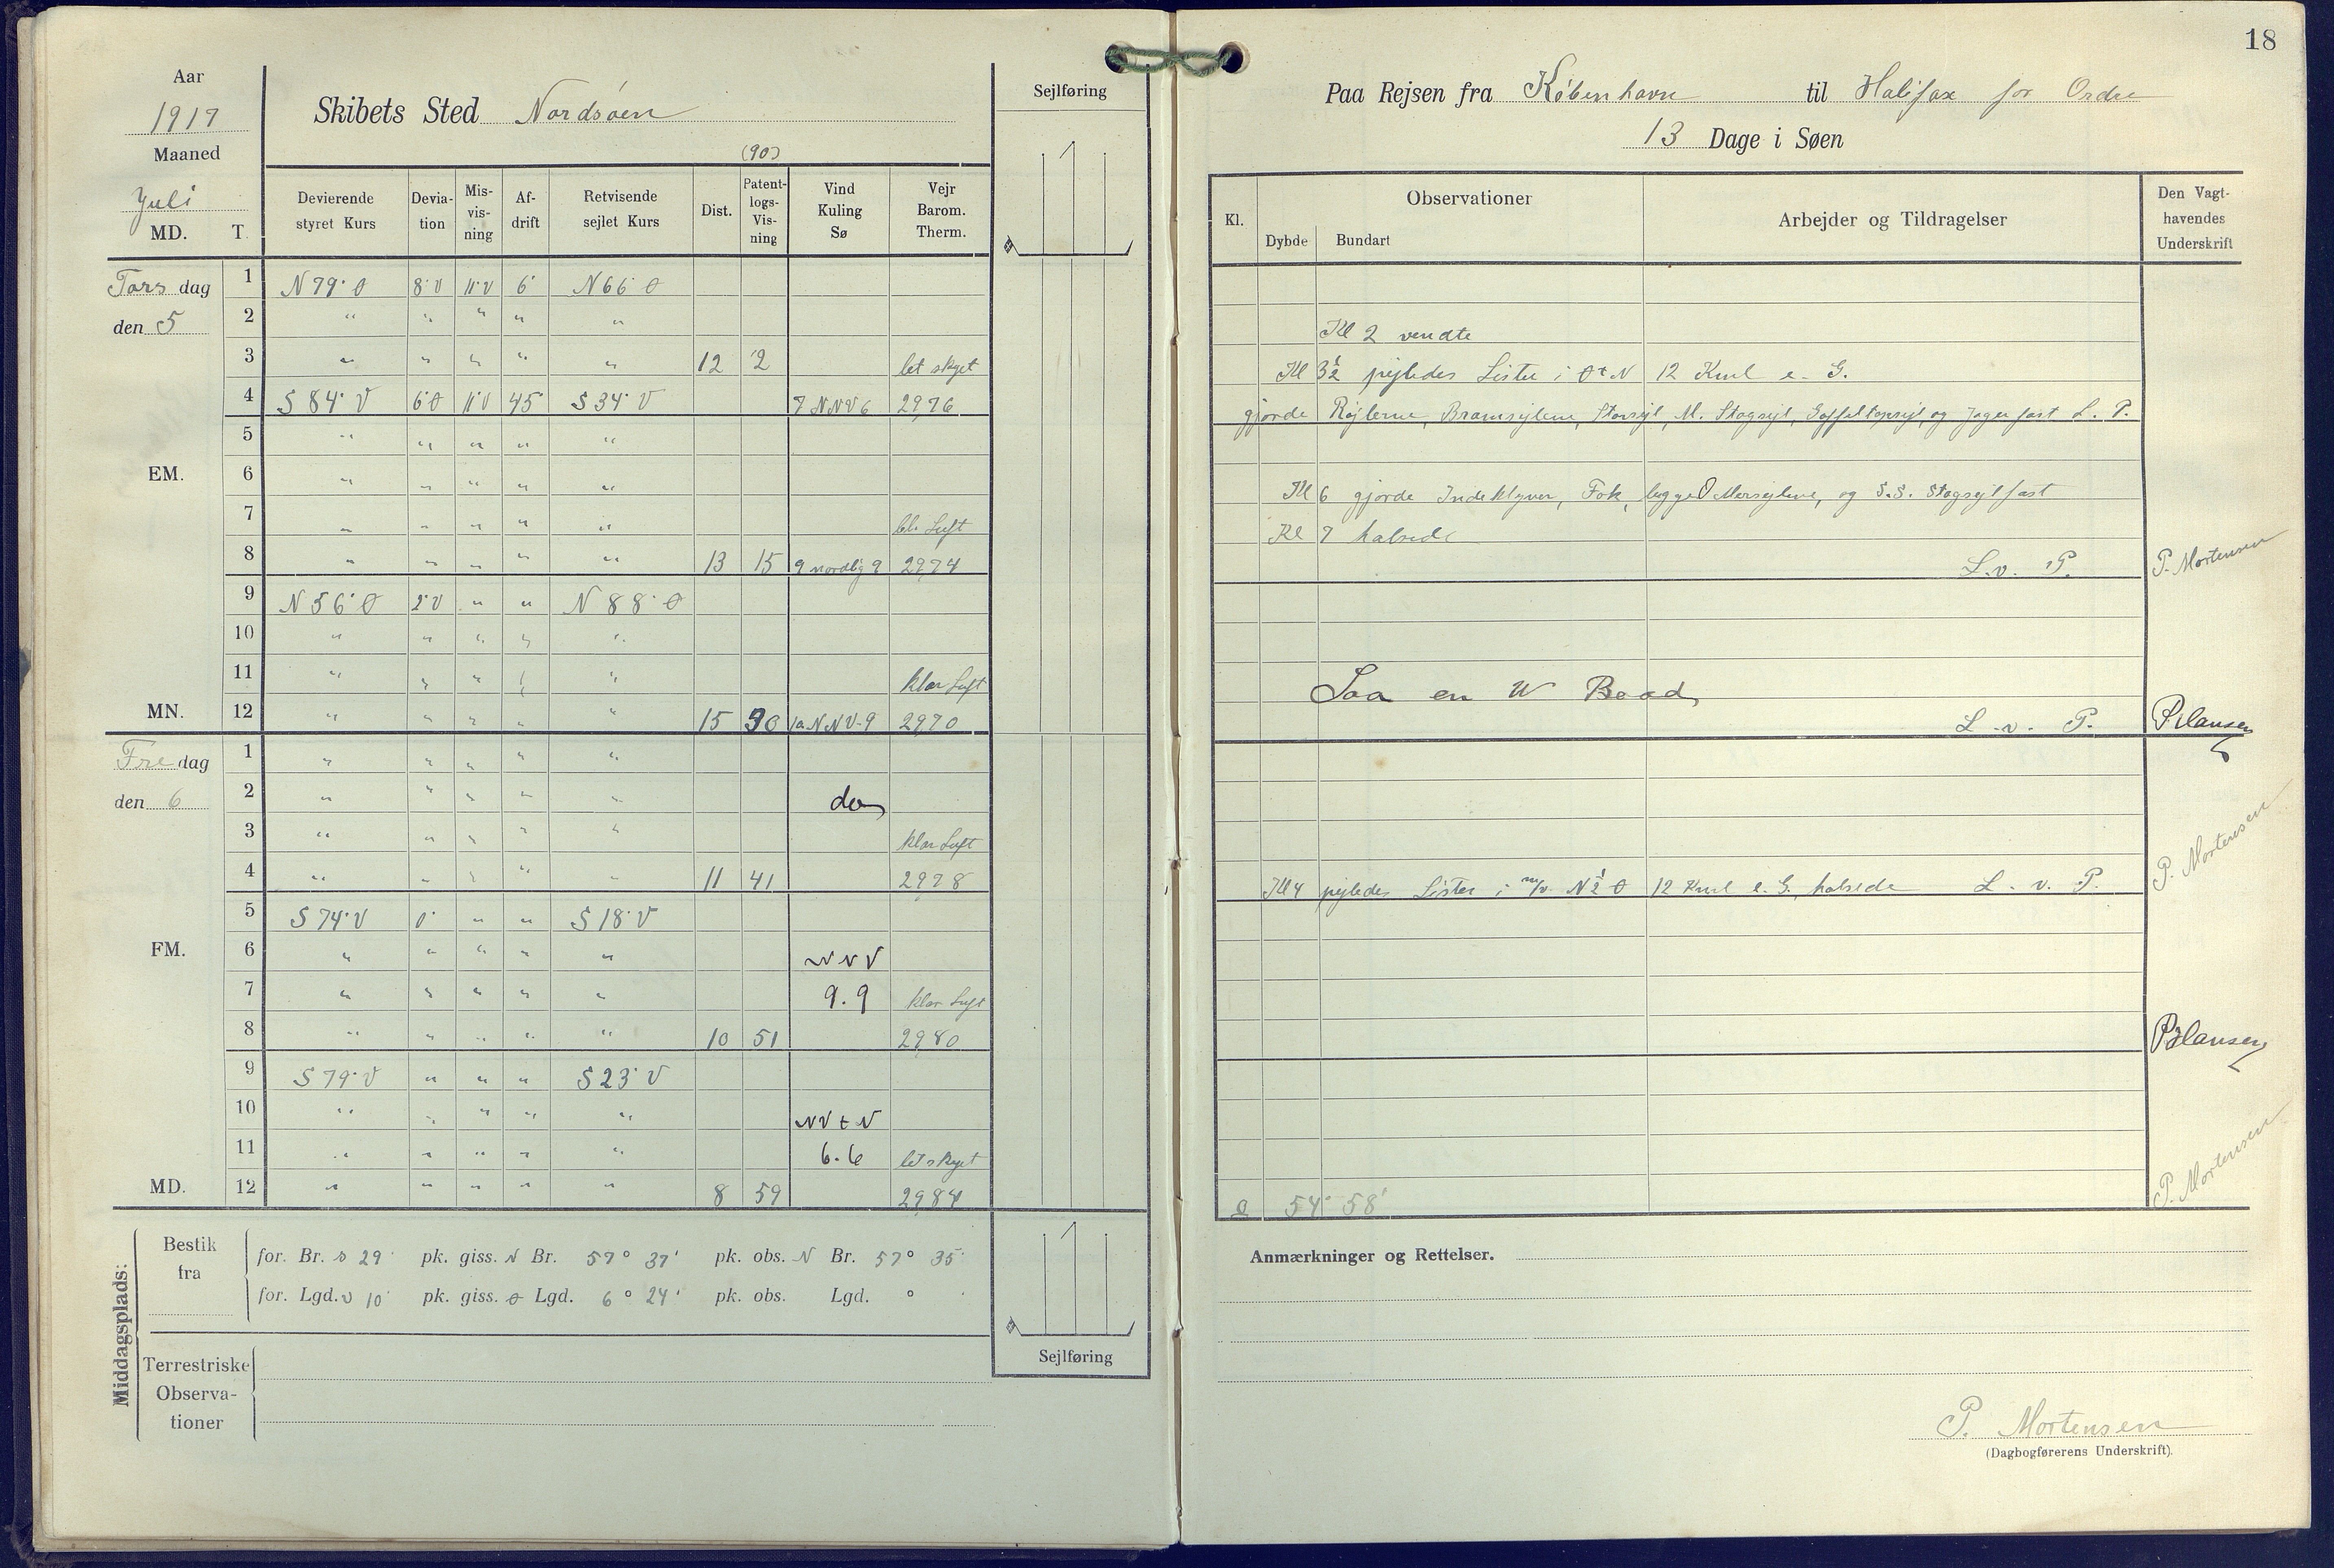 Aar
1917
Maaned
Juli
MD. T.
Skibets Sted Nordsøen
(90)
Devierende styret Kurs | Devia-tion | Mis-vis-ning | Af-drift | Retvisende sejlet Kurs | Dist. | Patent-logs-Vis-ning | Vind Kuling Sø | Vejr Barom. Therm.
Sejlføring
Tors dag 1 N 79° Ø 8° V 11° V 6° N 66° Ø
den 5 2 " " " " "
3 " " " " " 12 2 let skyet
4 S 84° V 6° Ø 11° V 45° S 34° V 7 NNV 6 29,76
5 " " " " "
EM. 6 " " " " "
7 " " " " " Luft
8 " " " " " 13 15 9 nordlig 9 29,74
9 N 56° Ø 2° V " " N 88° Ø
10 " " " " "
11 " " " " " klar Luft
MN. 12 " " " " " 15 30 10 NNV 9 29,70
Fre dag 1 " " " " "
den 6 2 " " " " " do
3 " " " " " klar Luft
4 " " " " " 11 41 29,78
5 S 74° V 0° " " S 18° V
FM. 6 " " " " " NNV
7 " " " " " 9.9 klar Luft
8 " " " " " 10 51 29,80
9 S 79° V " " " S 23° V
10 " " " " " NV t N
11 " " " " " 6.6 let skyet
MD. 12 " " " " " 8 59 29,84
Middagsplads:
Bestik fra
for. Br. S 29' pk. giss. N Br. 57° 37' pk. obs. N Br. 57° 35'
for. Lgd. V 10' pk. giss. Ø Lgd. 6° 24' pk. obs. Lgd. °
Terrestriske Observa-tioner
Sejlføring
18
Paa Rejsen fra København til Halifax for Ordre
13 Dage i Søen
Kl. | Observationer | Dybde | Bundart | Arbejder og Tildragelser | Den Vagt-havendes Underskrift
Kl 2 vendte
Kl 3½ pejledes Lister i Ø t N 12 Kml e. G.
gjorde Røjlerne, Bramsejlene, Storsejl, M. Stagsejl, Gaffeltopsejl, og Jager fast L. P.
Kl 6 gjorde Indeklyver, Fok, begge O Mersejlene, og S.S. Stagsejl fast
Kl 7 halsede
L. v. P. P. Mortensen
Saa en U Baad
L. v. P.
Kl 4 pejledes Lister i m/v. N ½ Ø 12 Kml e. G. halsede L. v. P. P. Mortensen
54° 58' P. Mortensen
Anmærkninger og Rettelser.
P. Mortensen
(Dagbogførerens Underskrift).